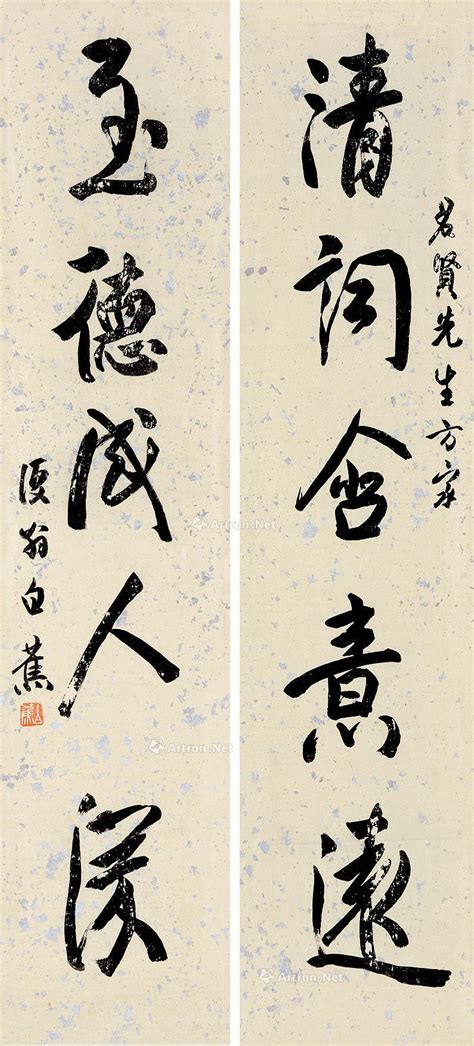 清詞含意遠
君賢先生方家
至德感人深
復翁白蕉
Artron.Net
Artron.Net
Artron.Net